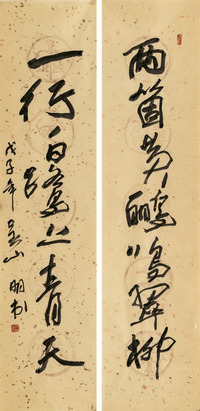 兩箇黄鸝鳴翠柳
一行白鷺上青天
戊子年 吴山明书